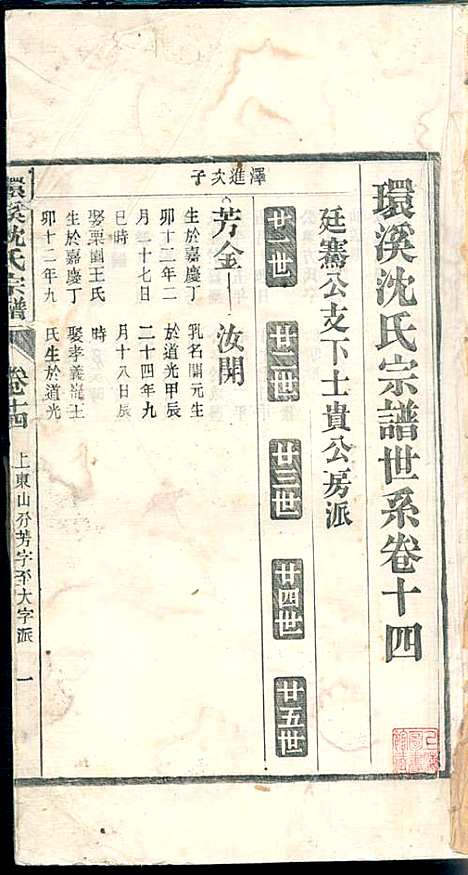 環溪沈氏宗譜世系卷十四
廷騫公支下士貴公房派
廿一世
廿二世
廿三世
廿四世
廿五世
澤進次子
芳金
生於嘉慶丁
卯十二年二
月二十七日
巳時
娶栗園王氏
生於嘉慶丁
卯十二年九
汝開
乳名開元生
於道光甲辰
二十四年九
月十八日辰
時
娶孝義龍王
氏生於道光
環溪沈氏宗譜
卷十四
上東山分芳字至大字派
一